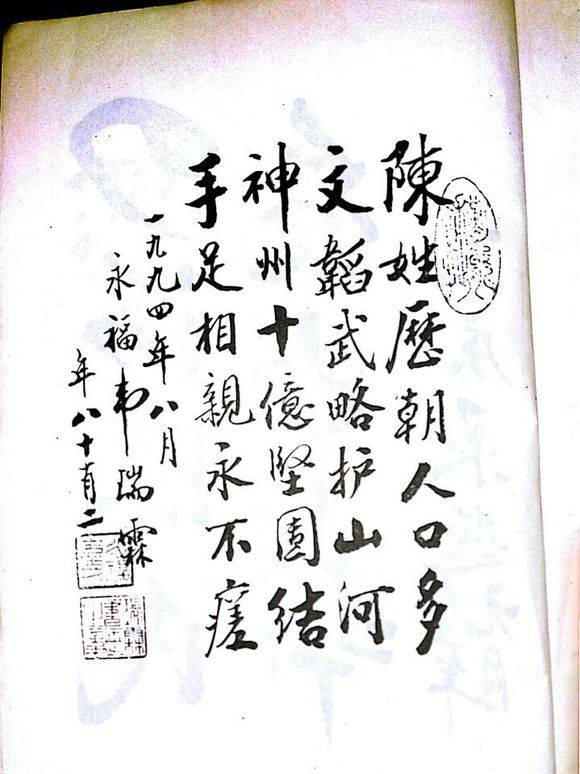 陳姓歷朝人口多
文韜武略护山河
神州十億堅團结
手足相親永不瘥
一九九四年八月
永福韦瑞霖
年八十有二